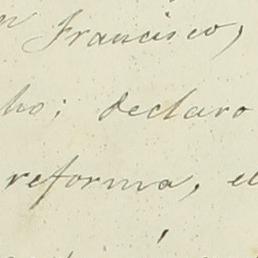 n Francisco,
ho; declaro
reforma, el